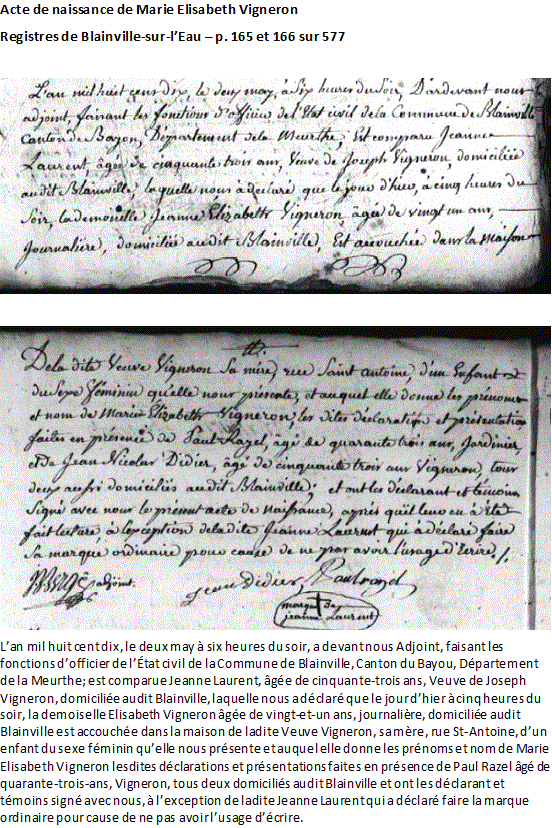 Acte de naissance de Marie Elisabeth Vigneron
Registres de Blainville-sur-l'Eau – p. 165 et 166 sur 577
L'an mil huit cens dix, le deux may, à Six heures du Soir, Pardevant nous
adjoint, faisant les fonctions d'officier de l'Etat civil de la Commune de Blainville
Canton de Bayon, Département de la Meurthe, Est comparu Jeanne
Laurent, âgée de cinquante trois ans, Veuve de Joseph Vigneron, domiciliée
audit Blainville, laquelle nous à déclaré que le jour d'hier, à cinq heures du
Soir, la demoiselle Jeanne Elizabeth Vigneron âgée de vingt un ans,
Journalière, domiciliée audit Blainville, Est accouchée dans la maison
De la dite Veuve Vigneron Sa mère, rue Saint antoine, d'un Enfant
du Sexe féminin qu'elle nous présente, et auquel elle donne les prénoms
et nom de Marie Elizabeth Vigneron, les dites déclaration et présentation
faites en présence de Paul Razel, âgé de quarante trois ans, Jardinier,
et de Jean Nicolas Didier, âgé de cinquante trois ans Vigneron, tous
deux aussi domiciliés audit Blainville; et ont les déclarant et témoins
Signé avec nous le présent acte de Naissance, après qu'il leur en à été
fait lecture, à l'exception de ladite Jeanne Laurent qui à déclaré faire
Sa marque ordinaire pour cause de ne pas avoir l'usage d'Ecrire ./.
adjoint.
Jean Didier
Paul razel
marque de
jeanne Laurent
L'an mil huit cent dix, le deux may à six heures du soir, a devant nous Adjoint, faisant les
fonctions d'officier de l'État civil de la Commune de Blainville, Canton du Bayou, Département
de la Meurthe; est comparue Jeanne Laurent, âgée de cinquante-trois ans, Veuve de Joseph
Vigneron, domiciliée audit Blainville, laquelle nous a déclaré que le jour d'hier à cinq heures du
soir, la demoiselle Elisabeth Vigneron âgée de vingt-et-un ans, journalière, domiciliée audit
Blainville est accouchée dans la maison de ladite Veuve Vigneron, sa mère, rue St-Antoine, d'un
enfant du sexe féminin qu'elle nous présente et auquel elle donne les prénoms et nom de Marie
Elisabeth Vigneron lesdites déclarations et présentations faites en présence de Paul Razel âgé de
quarante-trois-ans, Vigneron, tous deux domiciliés audit Blainville et ont les déclarant et
témoins signé avec nous, à l'exception de ladite Jeanne Laurent qui a déclaré faire la marque
ordinaire pour cause de ne pas avoir l'usage d'écrire.